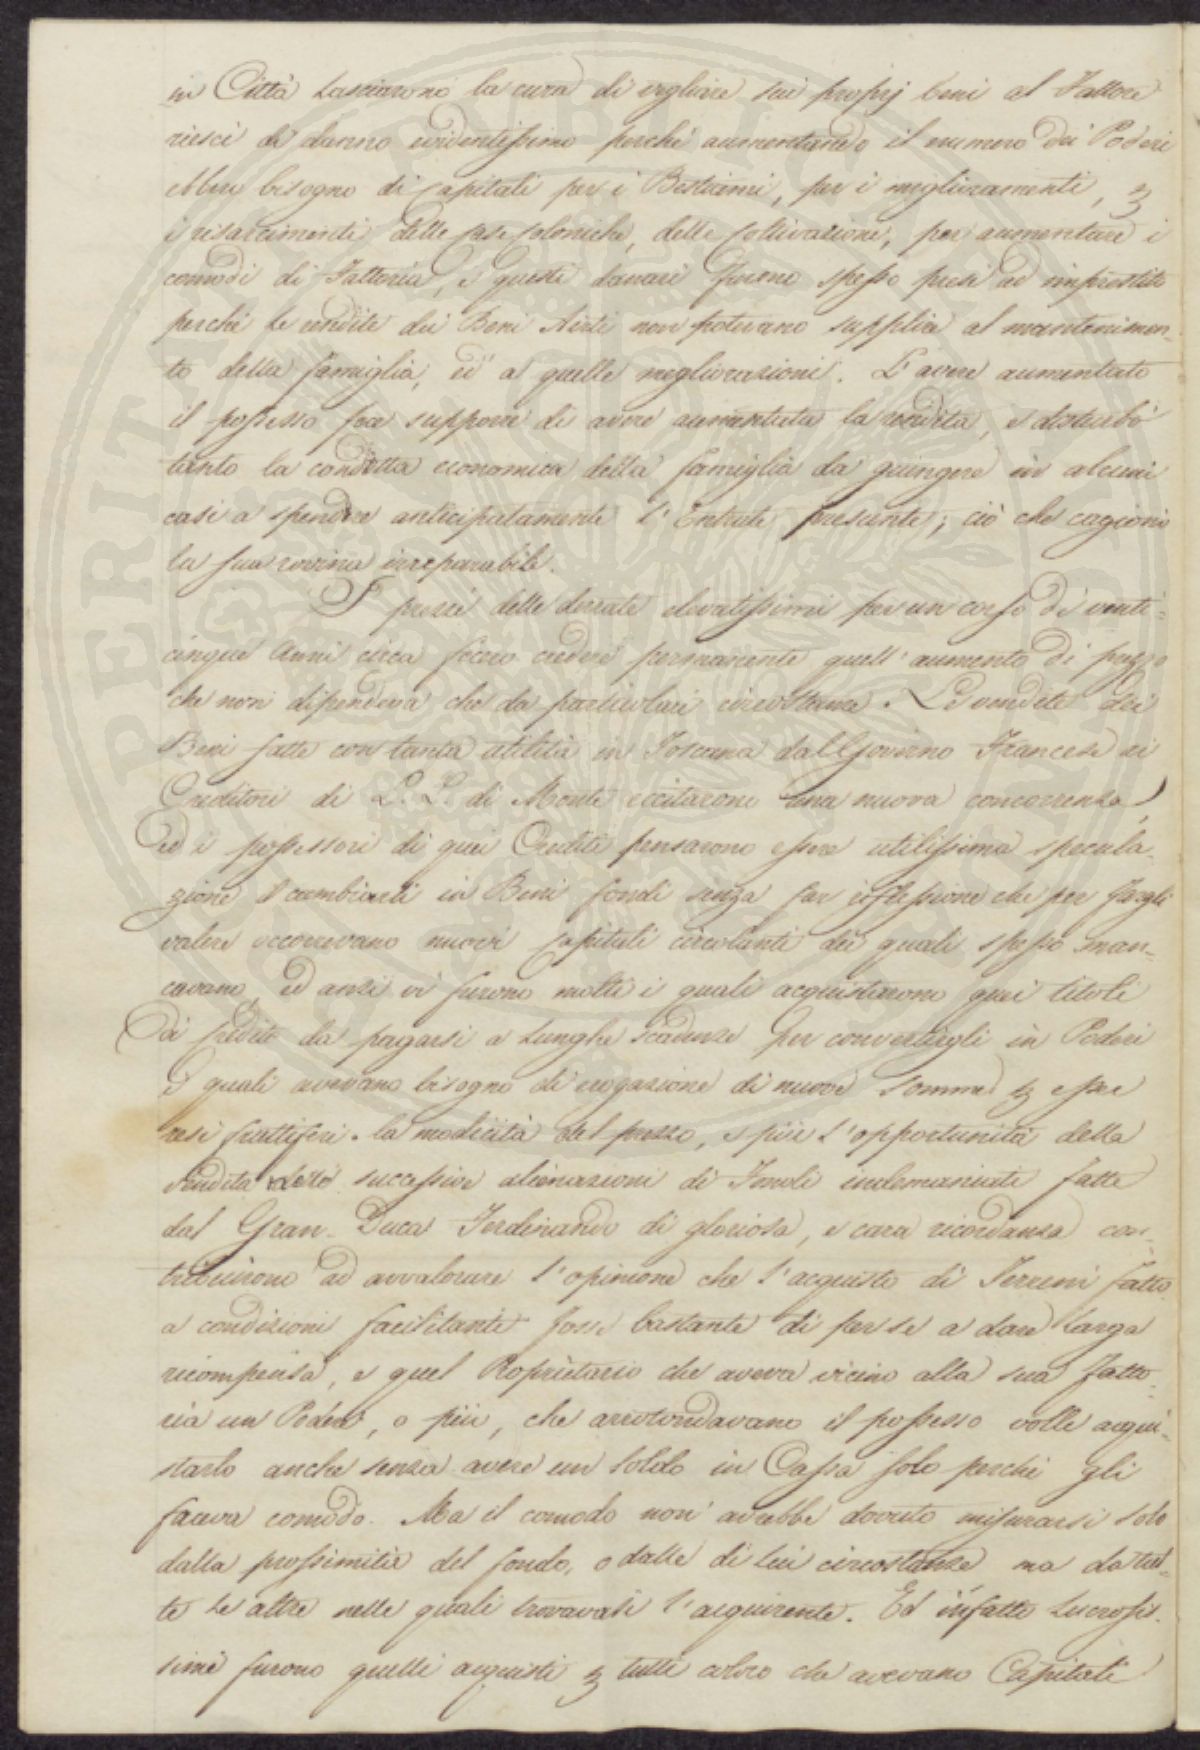 in Città lasciarono la cura di vegliare sui proprj beni al Fattore
riescì di danno evidentissimo perchè aumentando il numero dei Poderi
ebbero bisogno di capitali per i Bestiami, per i miglioramenti, p
i risarcimenti delle case coloniche, delle coltivazioni, per aumentare i
comodi di Fattoria, e questi danari furono spesso presi ad imprestito
perchè le rendite dei Beni Aviti non potevano supplire al mantenimen-
to della famiglia, ed a quelle megliorazioni. L'avere aumentato
il possesso fece supporre di avere aumentata la rendita, e disturbò
tanto la condotta economica della famiglia da giungere in alcuni
casi a spendere anticipatamente l'Entrate presunte; ciò che cagionò
la sua rovina irreparabile.
I prezzi delle derrate elevatissimi per un corso di venti-
cinque Anni circa fecero credere permanente quell'aumento di prezzo
che non dipendeva che da particolari circostanze. Le vendite dei
Beni fatte con tanta utilità in Toscana dal Governo Francese ai
Creditori di L. L. di Monte eccitarono una nuova concorrenza,
ed i possessori di quei Crediti pensarono essere utilissima specula-
zione il cambiarli in Beni fondi senza far riflessione che per fargli
valere occorrevano nuovi capitali circolanti dei quali spesso man-
cavano, ed anzi vi furono molti i quali acquistarono quei titoli
di credito da pagarsi a lunghe scadenze per convertirgli in Poderi
i quali avevano bisogno di erogazione di nuove somme p esser
resi fruttiferi. la modicità del prezzo, e più l'opportunità della
vendita delle successive alienazioni di Fondi indemaniati fatte
dal Gran-Duca Ferdinando di gloriosa, e cara ricordanza con-
tribuirono ad avvalorare l'opinione che l'acquisto di Terreni fatto
a condizioni facilitante fosse bastante di per se a dare larga
ricompensa, e quel Proprietario che aveva vicino alla sua Fatto-
ria un Podere, o più, che arrotondavano il possesso volle acqui-
starlo anche senza avere un soldo in Cassa solo perchè gli
faceva comodo. Ma il comodo non avrebbe dovuto misurarsi solo
dalla prossimità del fondo, o dalle di lui circostanze ma da tut-
te le altre nelle quali trovavasi l'acquirente. Ed infatti lucrosis-
simi furono quelli acquisti p tutti coloro che avevano Capitali
PERITI
PUBLICI